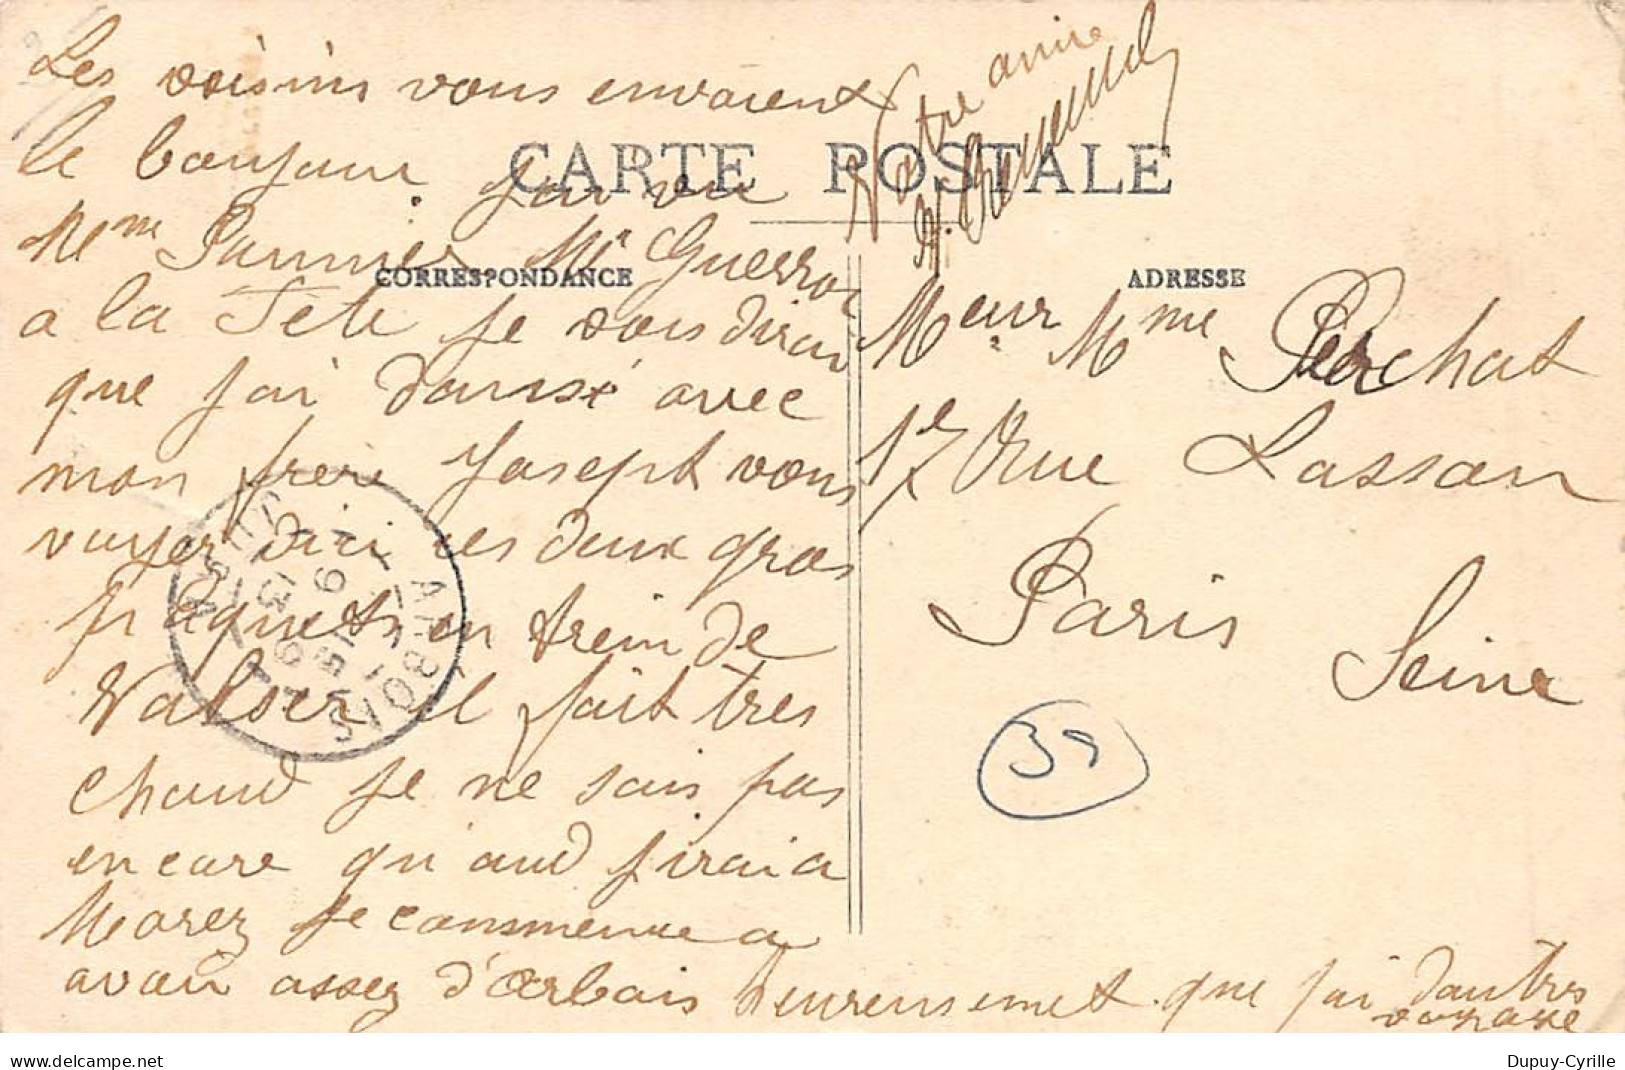 Les voisins vous envoient
le bonjour. J'ai vu
Mme Pannier Mr Guerrot
a la Fête je vous dirai
que j'ai dansé avec
mon frere Josept vous
voyer d'ici ces deux gros
paquets en trein de
Valser il fait tres
chaud je ne sais pas
encore qu'and j'irai a
Morez je commence a
avoir assez d'Arbois heureusemet que j'ai d'autres
voyage
Votre amie
CARTE POSTALE
CORRESPONDANCE
ADRESSE
Meur Mme Perchat
17 Rue Lasson
Paris
Seine
39
ARBOIS
JURA
Dupuy-Cyrille
www.delcampe.net